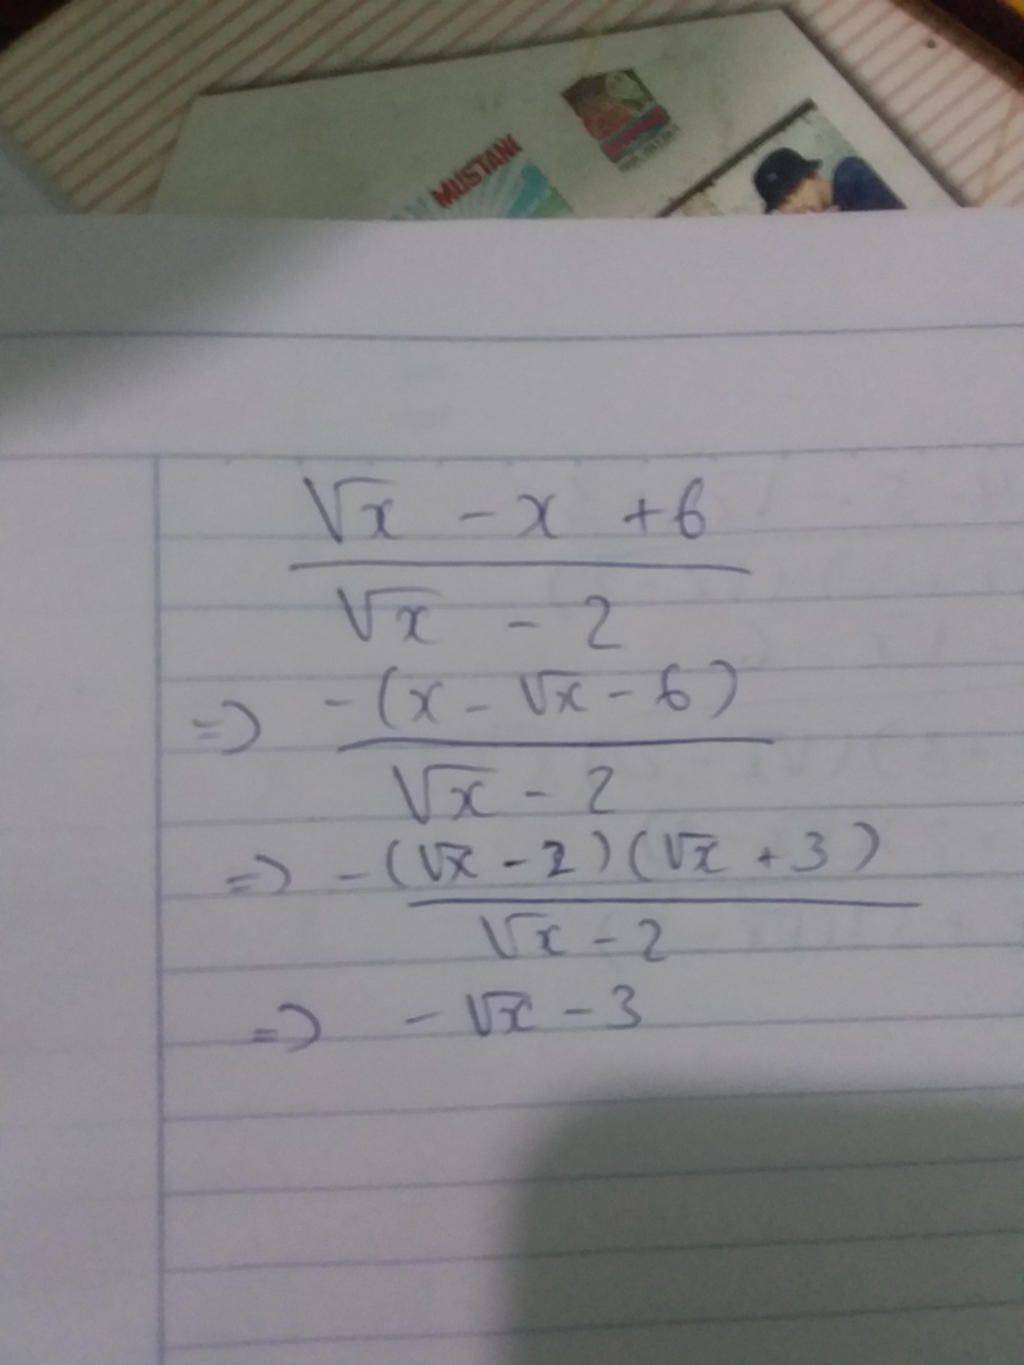 MUSTANG
√x - x + 6
√x - 2
=> -(x - √x - 6)
√x - 2
=> -(√x - 2)(√x + 3)
√x - 2
=> -√x - 3